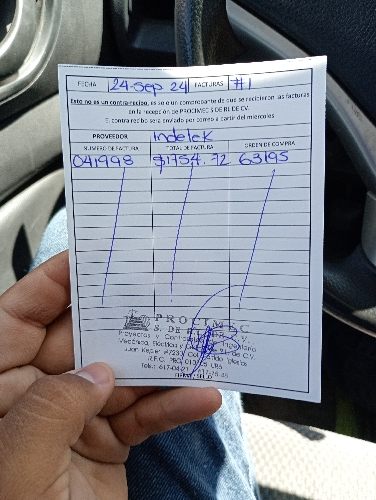 FECHA 24-Sep 24 FACTURAS #1
Esto no es un contra-recibo, es solo un comprobante de que se recibieron las facturas
en la recepción de PROCIMEC S DE RL DE CV.
El contra recibo será enviado por correo a partir del miercoles
PROVEEDOR Indelek
NUMERO DE FACTURA TOTAL DE FACTURA ORDEN DE COMPRA
041998 $1754.72 63195
PROCIMEC
S. DE R.L. C.V.
Proyectos y
Mecánica, Eléctrica y de C.V.
Juan Kepler
R.F.C. PRO
Tels.: 617-04-21